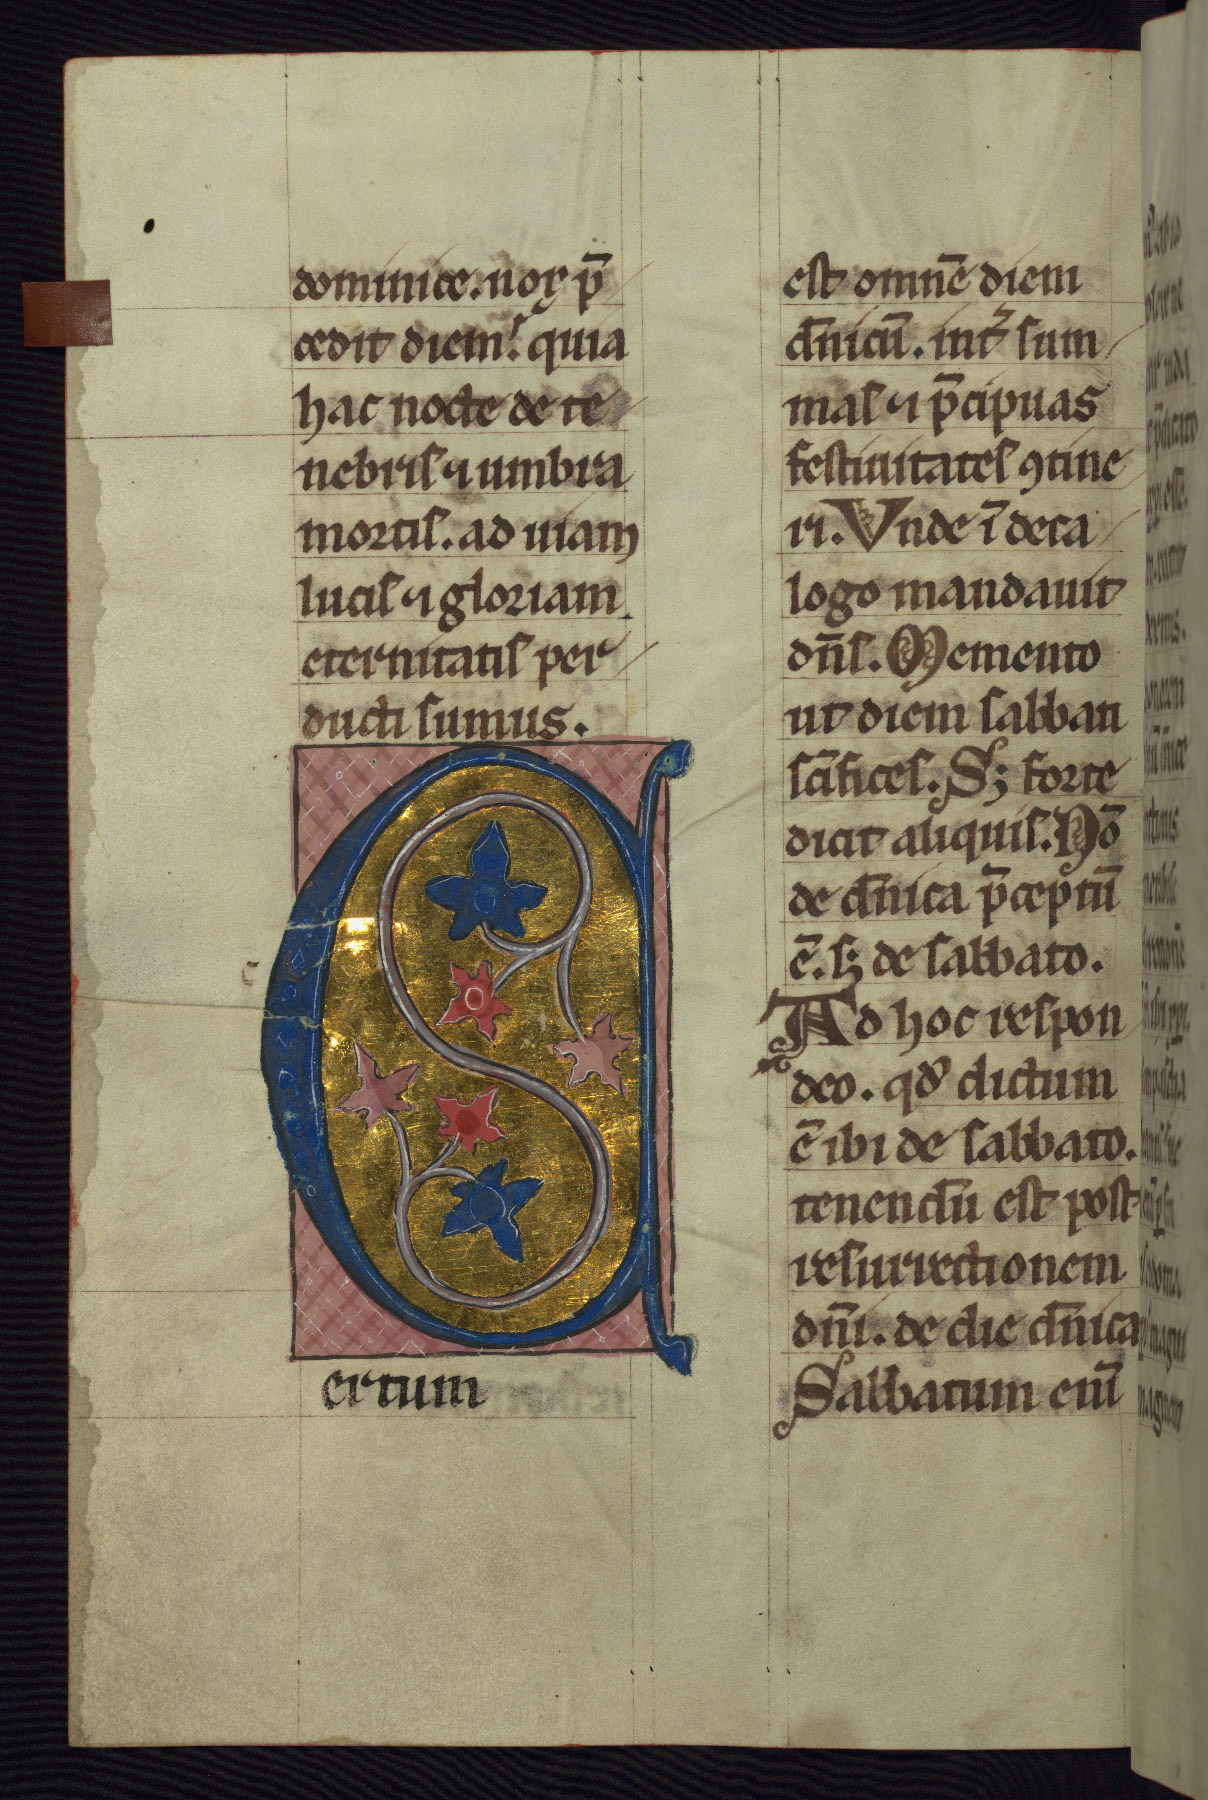 dominice. nox p̄
cedit diem: quia
hac nocte de te
nebris ⁊ umbra
mortis. ad uiam
lucis ⁊ gloriam
eternitatis per
ducti sumus.
C
ertum
est omnē diem
dn̄icū. int̉ sum
mas ⁊ p̄cipuas
festiuitates ꝯtine
ri. Vnde ī deca
logo mandauit
dn̄s. Memento
ut diem sabbati
sc̄ifices. Sꝫ forte
dicit aliquis. Nō
de dn̄ica p̄ceptū
ē. sꝫ de sabbato.
Ad hoc respon
deo. qđ dictum
ē ibi de sabbato.
tenendū est post
resurrectionem
dn̄i. de die dn̄ica
Sabbatum eni̅